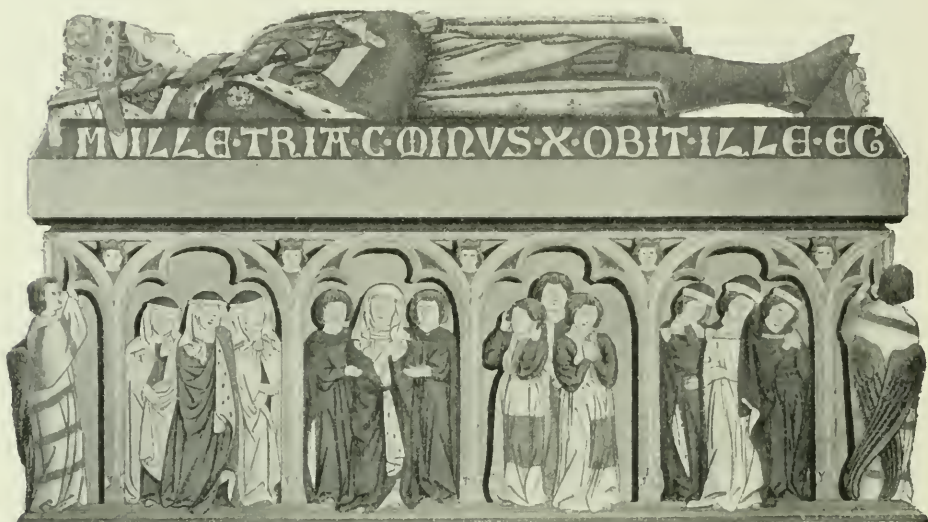 MILLE·TRIA·C·MINVS·X·OBIT·ILLE·EG